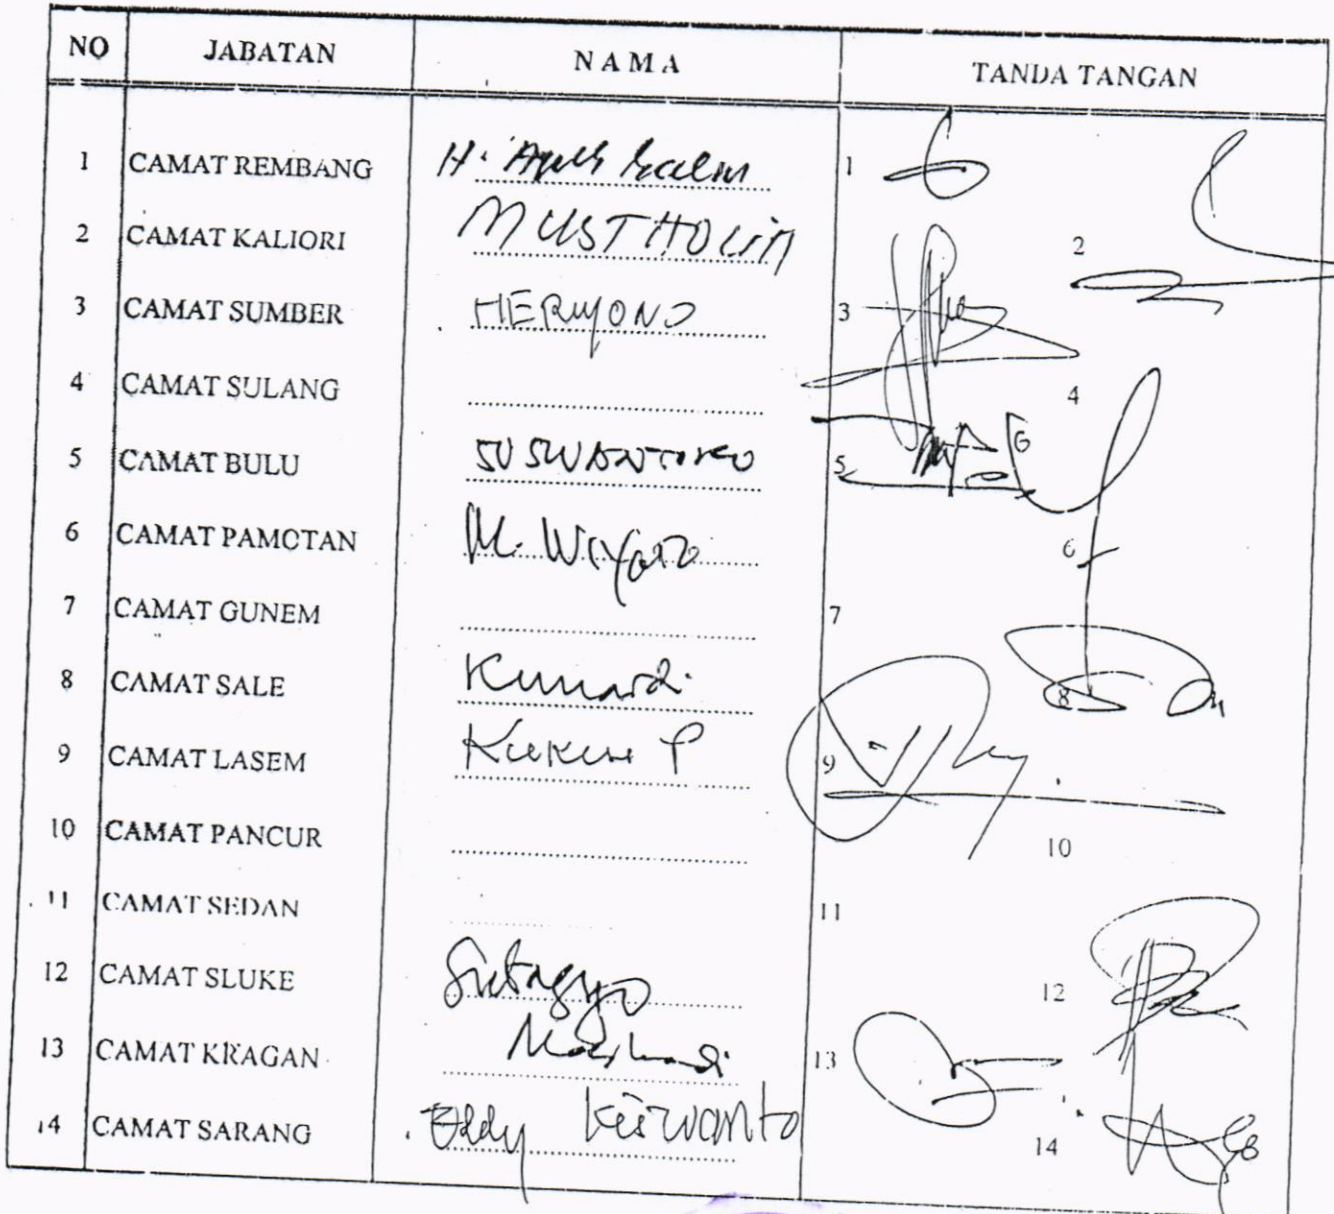 NO JABATAN NAMA TANDA TANGAN
1 CAMAT REMBANG H. 1
2 CAMAT KALIORI MUSTHOLIH 2
3 CAMAT SUMBER HERIYONO 3
4 CAMAT SULANG 4
5 CAMAT BULU SUSWANTORO 5
6 CAMAT PAMOTAN M. Wiyoto 6
7 CAMAT GUNEM 7
8 CAMAT SALE Kunardi 8
9 CAMAT LASEM 9
10 CAMAT PANCUR 10
11 CAMAT SEDAN 11
12 CAMAT SLUKE 12
13 CAMAT KRAGAN 13
14 CAMAT SARANG Eddy Kiswanto 14